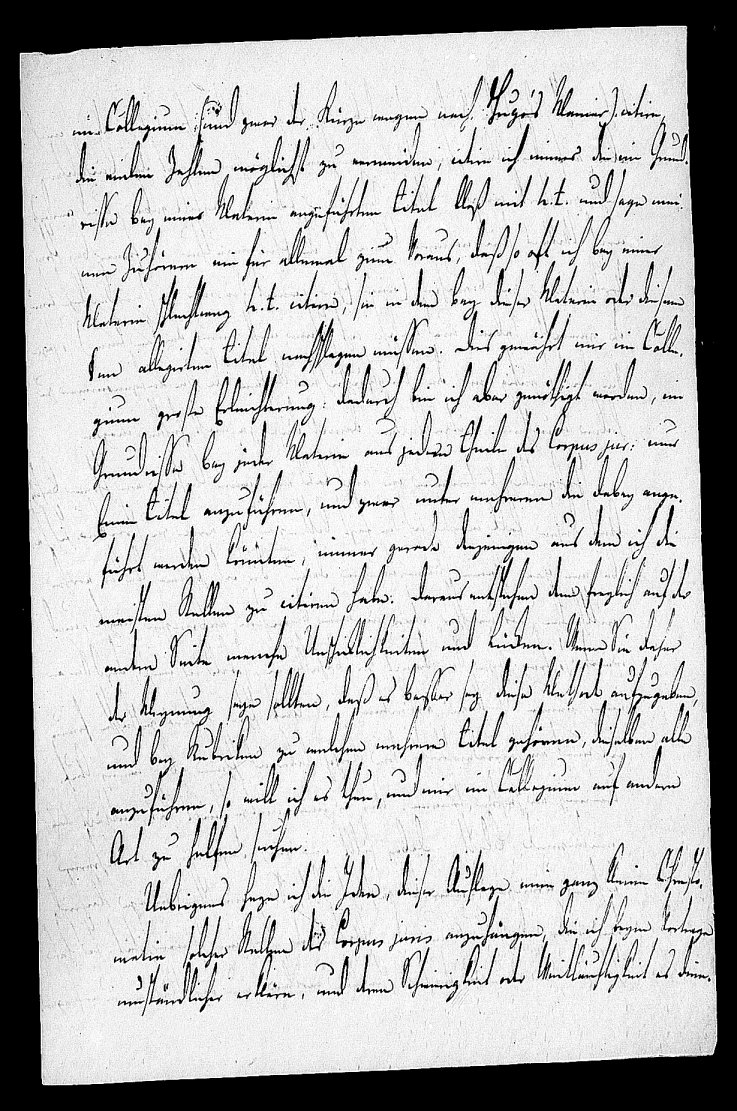 im Collegium (und zwar der Kürze wegen nach Hugo's Manier) citire,
die vielen Zahlen möglichst zu vermeiden, citire ich immer die im Grund-
risse bey einer Materie angeführten Titel bloß mit h.t. und sage mei-
nen Zuhörern ein für allemal zum Voraus, daß so oft ich bey einer
Materie schlechtweg h.t. citire, sie in dem bey dieser Materie oder diesem
§en allegirten Titel nachschlagen müssen. Dies gewährt mir im Colle-
gium große Erleichterung: dadurch bin ich aber genöthigt worden, im
Grundrisse bey jeder Materie aus jedem Theile des Corpus jur: nur
Einen Titel anzuführen, und zwar unter mehreren die dabey ange-
führt werden könnten, immer gerade denjenigen aus dem ich die
meisten Stellen zu citiren habe. Daraus entstehen denn freylich auf der
andern Seite manche Unschicklichkeiten und Lücken. Wenn Sie daher
der Meynung seyn sollten, daß es besser sey diese Methode aufzugeben,
und bey Rubriken zu welchen mehrere Titel gehören, dieselben alle
anzuführen, so will ich es thun, und mir im Collegium auf andere
Art zu helfen suchen.
Uebrigens hege ich die Idee, dieser Auflage eine ganz kleine Chresto-
matie solcher Stellen des Corpus juris anzuhängen, die ich beym Vortrage
umständlicher erkläre, und deren Schwierigkeit oder Weitläuftigkeit es